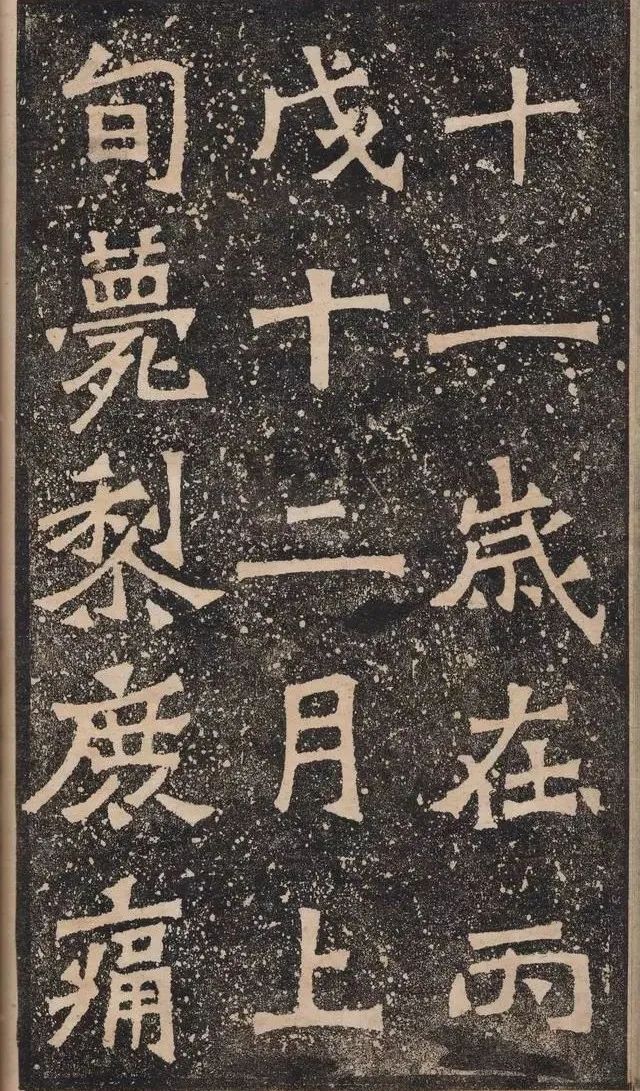 十一歲在丙
戌十二月上
旬薨黎庶痛